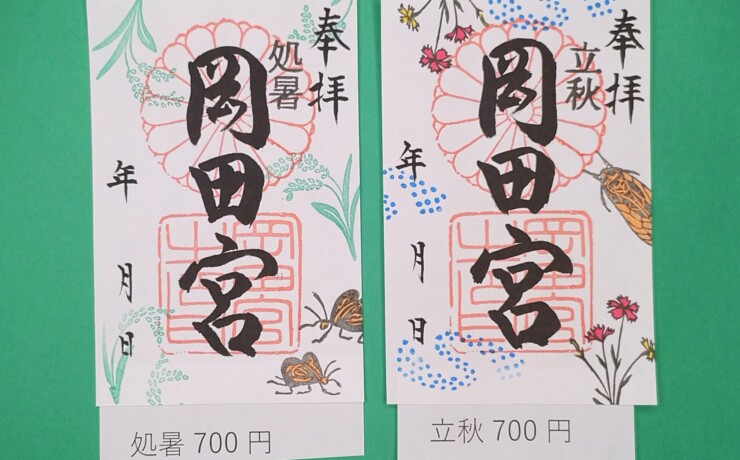 奉拝
処暑
岡田宮
年
月
日
処暑 700 円
奉拝
立秋
岡田宮
年
月
日
立秋 700 円